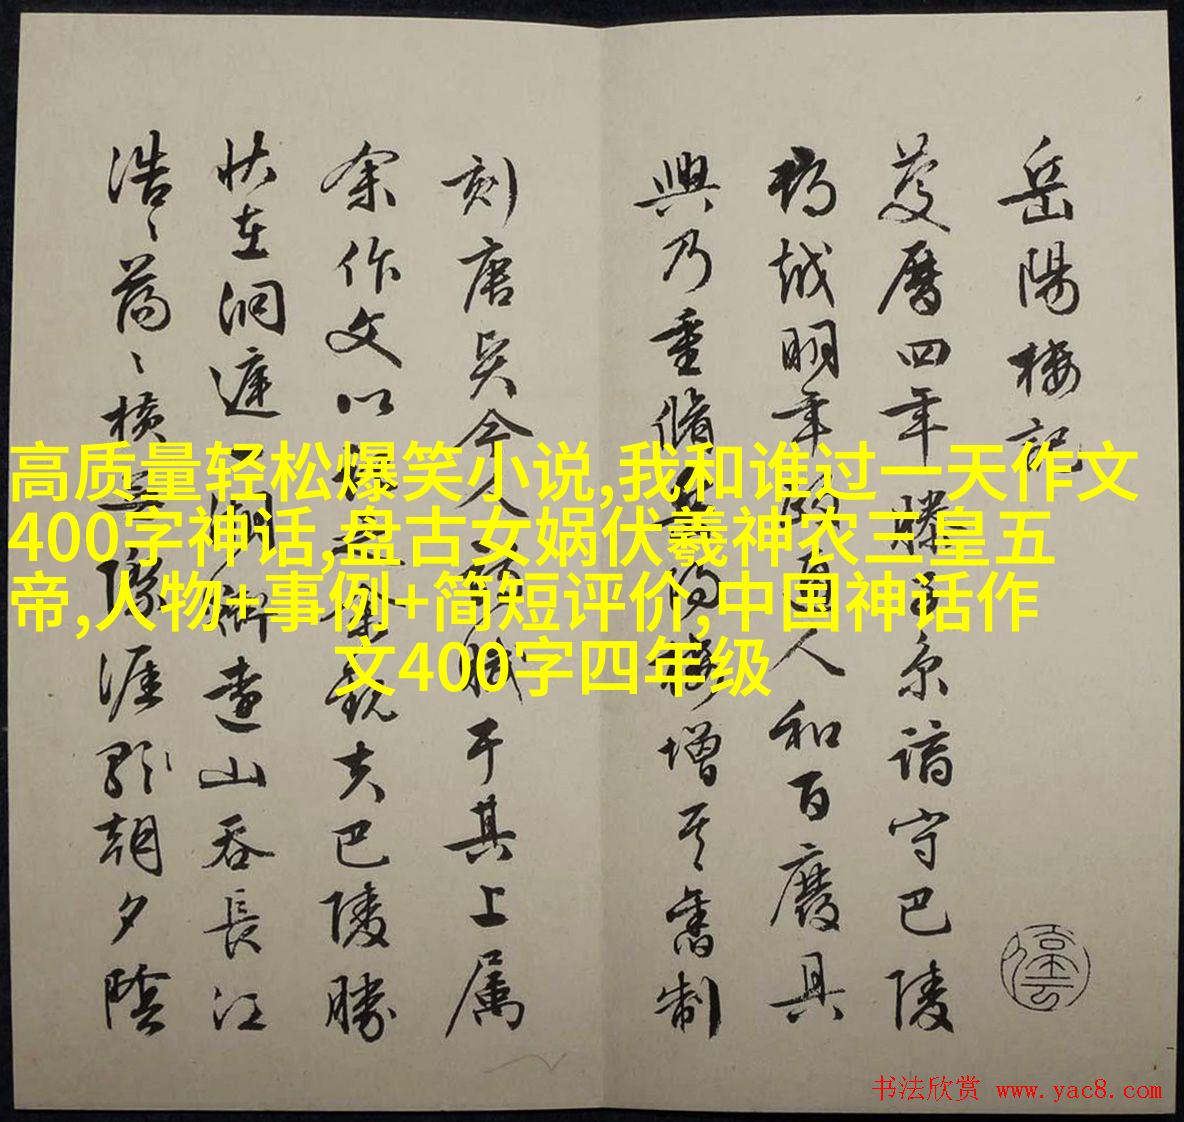 岳陽樓記
慶曆四年滕子京謫守巴陵
郡越明年政通人和百廢具
興乃重脩岳陽樓增其舊制
刻唐賢今人詩賦于其上屬
余作文以記之余觀夫巴陵勝
狀在洞庭一湖銜遠山吞長江
浩〻蕩〻橫無際涯朝夕陰
高质量轻松爆笑小说,我和谁过一天作文
400字神话,盘古女娲伏羲神农三皇五
帝,人物+事例+简短评价,中国神话作
文400字四年级
书法欣赏 www.yac8.com